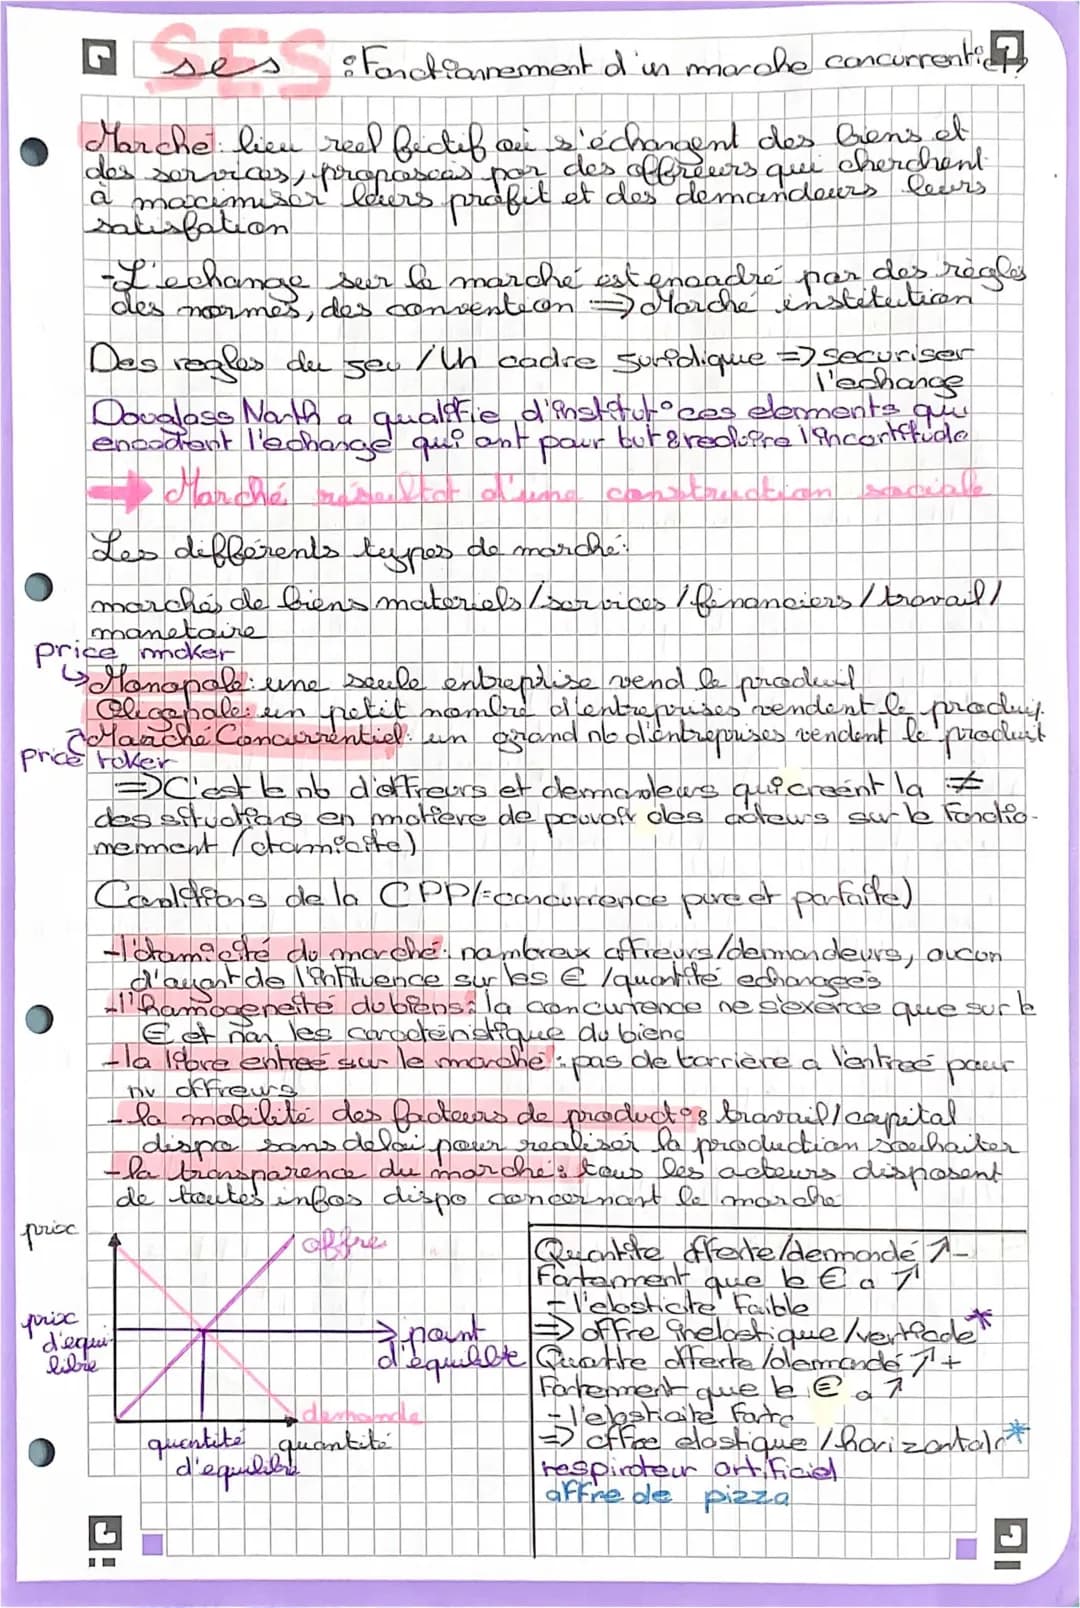 SES
ses : Fonctionnement d'un marche concurrentiel
Marché: lieu reel fictif où s'échangent des biens et
des services, proposeés par des offreurs qui cherchent
à maximiser leurs profit et des demandeurs leurs
satisfation
-L'echange sur le marché est encadré par des règles
des normes, des convention => Marché institution
Des regles du jeu / Un cadre juridique => securiser
l'echange
Douglass North a qualifie d'institut° ces elements qui
encadrent l'echange qui ont pour but de reduire l'incertitude
→ Marché résultat d'une construction sociale
Les différents types de marché:
marchés de biens materiels / services / financiers / travail /
monetaire
price maker
↳ Monopole: une seule entreprise vend le produit
Oligopole: un petit nombre d'entreprises vendent le produit.
Marché Concurrentiel: un grand nb d'entreprises vendent le produit
price taker
=> C'est le nb d'offreurs et demandeurs qui creént la ≠
des situations en matière de pouvoir des acteurs sur le fonctio-
nement (atomicité)
Conditions de la CPP (=concurrence pure et parfaite)
-l'atomicité du marché: nombreux offreurs/demandeurs, aucun
d'ayant de l'influence sur les € /quantité echangeés
-l'homogeneité de biens: la concurence ne s'exerce que sur le
€ et non les caractéristique du biens
-la libre entreé sur le marché : pas de barrière a l'entreé pour
nv offreurs
-la mobilité des facteurs de product°: travail/capital
dispo sans delai pour realiser la production souhaiter
-la transparence du marché: tous les acteurs disposent
de toutes infos dispo concernant le marche
prix
offre
prix
d'equi-
libre
point
d'équilibre
demande
quantité
d'equilibre
quantité
Quantite offerte/demandé ↗ -
Fortement que le € a ↗
- l'elasticite faible
=> offre inelastique/verticale*
Quantite offerte/demandé ↗ +
Fortement que le € a ↗
- l'elasticite forte
=> offre elastique / horizontale*
respirateur artificiel
offre de pizza